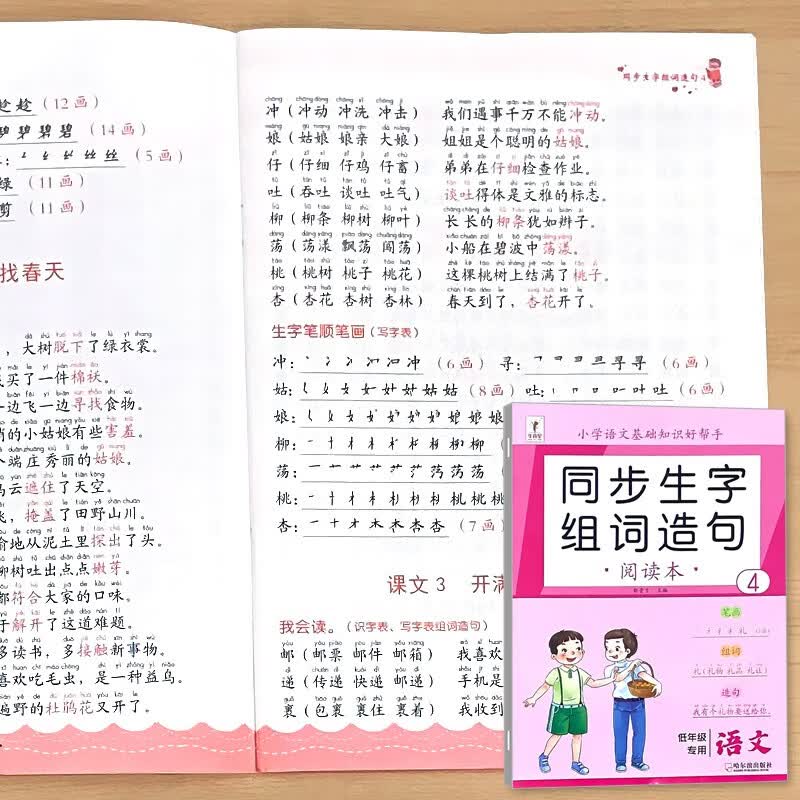 趁趁（12画）
碧碧碧（14画）
丝丝（5画）
绿（11画）
剪（11画）
找春天
，大树脱下了绿衣裳。
买了一件棉袄。
一边飞一边寻找食物。
的小姑娘有些害羞。
个端庄秀丽的姑娘。
乌云遮住了天空。
，掩盖了田野山川。
偷地从泥土里探出了头。
柳树吐出点点嫩芽。
都符合大家的口味。
于解开了这道难题。
多读书，多接触新事物。
喜欢吃毛虫，是一种益鸟。
遍野的杜鹃花又开了。
同步生字组词造句 4
冲（冲动 冲洗 冲击） 我们遇事千万不能冲动。
娘（姑娘 娘亲 大娘） 姐姐是个聪明的姑娘。
仔（仔细 仔鸡 仔畜） 弟弟在仔细检查作业。
吐（吞吐 谈吐 吐气） 谈吐得体是文雅的标志。
柳（柳条 柳树 柳叶） 长长的柳条犹如辫子。
荡（荡漾 飘荡 闯荡） 小船在碧波中荡漾。
桃（桃树 桃子 桃花） 这棵桃树上结满了桃子。
杏（杏花 杏树 杏林） 春天到了，杏花开了。
生字笔顺笔画（写字表）
冲：（6画）寻：（6画）
姑：（8画）吐：（6画）
娘：
柳：
荡：
桃：
杏：（7画）
课文3 开满
我会读。（识字表、写字表组词造句）
邮（邮票 邮件 邮箱） 我喜欢
递（传递 快递 邮递） 手机是
裹（包裹 裹住 裹着） 我收到
小学语文基础知识好帮手
同步生字
组词造句
·阅读本·
4
笔画
组词
礼（礼物 礼品 礼让）
造句
我有个礼物要送给你。
低年级
专用
语文
哈尔滨出版社